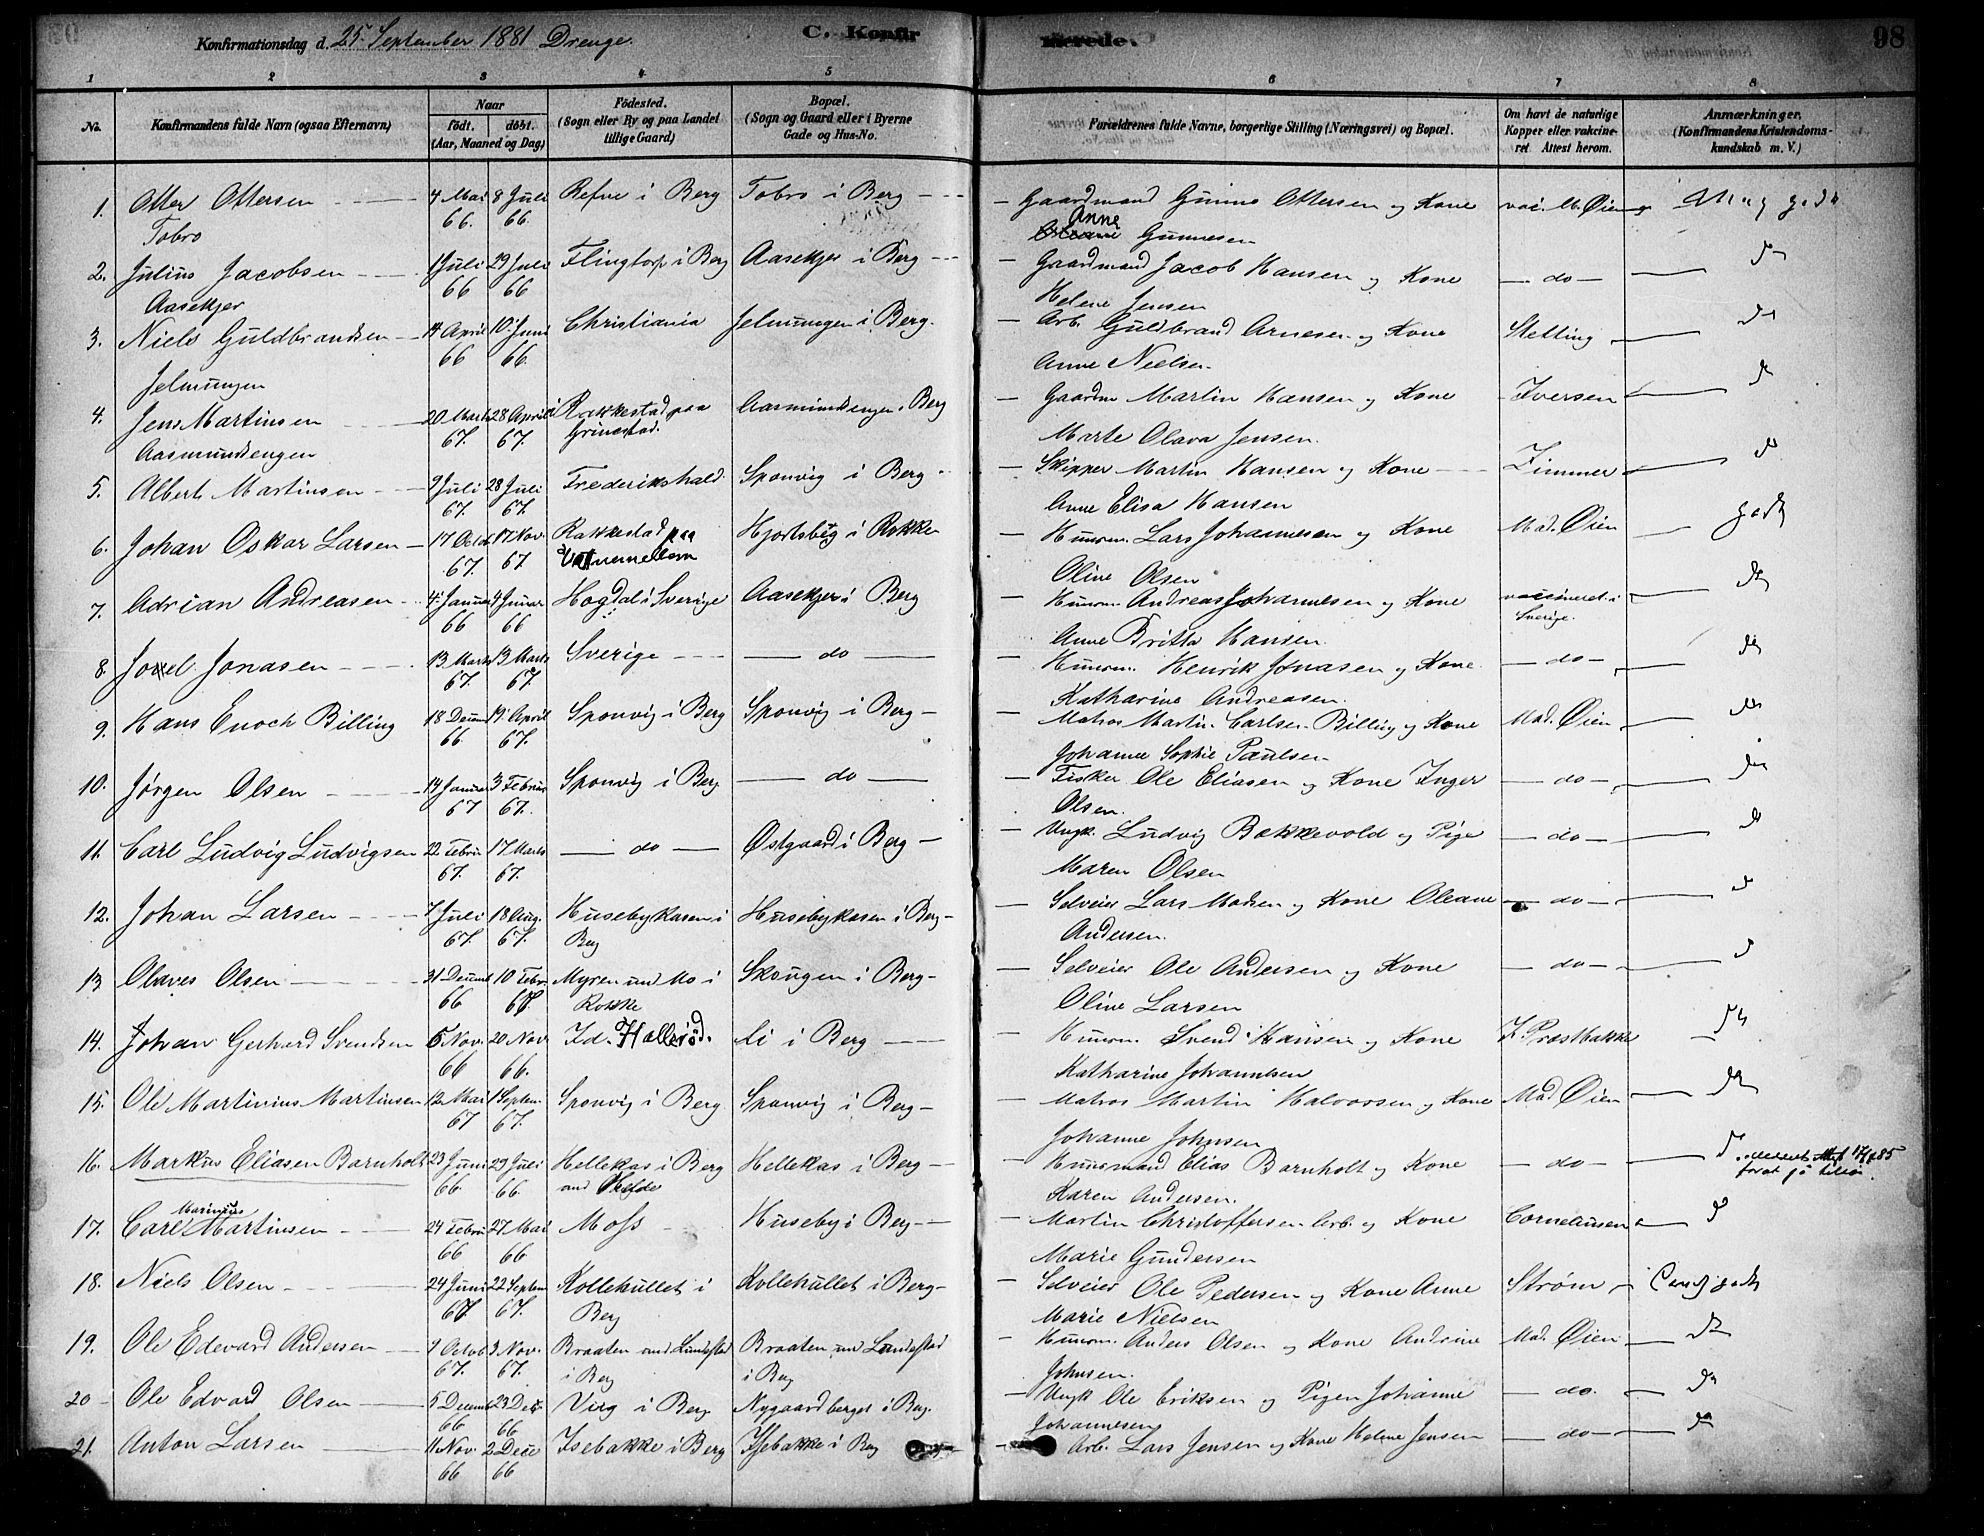 Konfirmationsdag d. 25. September 1881 Drenge. C. Konfirmerede. 98
1 2 3 4 5 6 7 8
No. Konfirmandens fulde Navn (ogsaa Efternavn) Naar födt. döbt. (Aar, Maaned og Dag) Födested. (Sogn eller By og paa Landet tillige Gaard) Bopæl. (Sogn og Gaard eller i Byerne Gade og Hus-No. Forældrenes fulde Navne, borgerlige Stilling (Næringsvei) og Bopæl. Om havt de naturlige Kopper eller vakcineret Attest herom. Anmærkninger. (Konfirmandens Kristendomskundskab m. V.)
1. Otter Ottersen 4 Mai 8 Juli Refne i Berg Tobro i Berg Gaardmand Gunno Ottersen og Kone vac. M. Øien Meg godt
Tobro 66. 66. Anne Gunnesen
2. Julius Jacobsen 1 Juli 29 Juli Flingtorp i Berg Aasekjer i Berg Gaardmand Jacob Hansen og Kone do
Aasekjer 66 66 Helene Jensen
3. Niels Guldbrandsen 14 April 10 Juni Christiania Jelmungen i Berg. Arb. Guldbrand Arnesen og Kone Stetting
Jelmungen 66 66. Anne Nielsen.
4. Jens Martinsen 20 Marts 28 April Rakkestad paa Aasmundsengen i Berg Gaardm Martin Hansen og Kone Iversen
Aasmundsengen 67. 67. Grinestad. Marte Olava Jensen.
5. Albert Martinsen 9 Juli 28 Juli Frederikshald Sponvig i Berg Skipper Martin Hansen og Kone Zimmer
67. 67. Anne Elisa Hansen
6. Johan Oskar Larsen 17 Octob 17 Nov. Rakkestad paa Hjortsberg i Rokke Husm. Lars Johannesen og Kone Mad. Øien godt
67. 67 Oline Olsen
7. Adrian Andreasen 4 Januar 4 Januar Hogdal i Sverige Aasekjer i Berg Husm. Andreas Johannesen og Kone vaccineret i
66 66 Anne Britta Hansen Sverige.
8. Joel Jonasen 13 Marts 13 Marts Sverige do Husm. Henrik Jonasen og Kone do
67. 67. Katharine Andreasen.
9. Hans Enoch Billing 18 Decem 19 April Sponvig i Berg Sponvig i Berg Matros Martin Carlsen Billing og Kone Mad. Øien
66. 67. Johanne Sophie Paulsen
10. Jørgen Olsen 14 Januar 3 Februar Sponvig i Berg do Fisker Ole Eliasen og Kone Inger do
67 67. Olsen.
11. Carl Ludvig Ludvigsen 22 Februar 17 Marts do Østgaard i Berg Ungk. Ludvig Bakkevold og Pige do
67. 67. Maren Olsen
12. Johan Larsen 7 Juli 18 Aug. Husebykasen i Husebykasen i Berg Selveier Lars Madsen og Kone Oleane do
67. 67. Berg Andersen.
13 Olaves Olsen 31 Decemb 10 Febr. Myren und Mo i Skougen i Berg Selveier Ole Andersen og Kone do
66 67. Rokke Oline Larsen
14. Johan Gerhard Svendsen 5 Nov. 20 Nov. Id. Hallerød. Li i Berg Husm. Svend Hansen og Kone I. Præstbakke
66 66. Katharine Johannesen
15. Ole Martinius Martinsen 12 Mai 1 Septem Sponvig i Berg Sponvig i Berg Matros Martin Halvorsen og Kone Mad Øien
67 67. Johanne Johnsen
16. Markus Eliasen Barnholt 23 Juni 29 Juli Hellekas i Berg Hellekas i Berg Husmand Elias Barnholt og Kone do
66. 66. Karen Andersen.
17. Carl Marinius Martinsen 24 Februar 27 Mai Moss Huseby i Berg Martin Christoffersen Arb. og Kone Corneliusen
66 66 Marie Gundersen
18. Niels Olsen 24 Juni 22 Septem Kollehullet i Kollehullet i Berg Selveier Ole Pedersen og Kone Anne Strøm
67. 67. Berg Marie Nielsen
19. Ole Edevard Andersen 9 Octob 3 Nov. Braaten und Lundestad Braaten und Lundestad Husm. Anders Olsen og Kone Andrine Mad. Øien
67. 67. i Berg i Berg Johnsen.
20 Ole Edvard Olsen 5 Decemb 23 Dec. Viig i Berg Nygaardberget i Berg. Ungk Ole Eriksen og Pigen Johanne do.
66 66 Johannesen
21. Anton Larsen 11 Nov. 2 Dece Isebakke i Berg Isebakke i Berg Arb. Lars Jensen og Kone Helene Jensen do
66 66